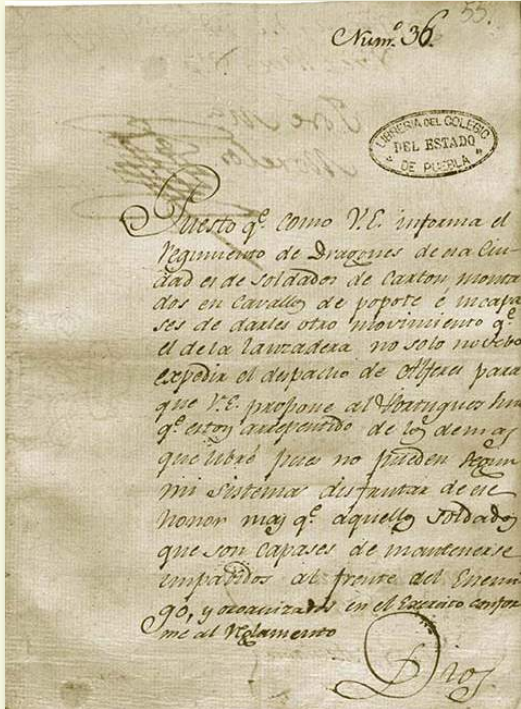 55.
Num.º 36.
LIBRERIA DEL COLEGIO
DEL ESTADO
DE PUEBLA
Puesto q.e como V.E. informa el
Regimiento de Dragones de esa Ciu-
dad es de soldados de Carton monta
dos en Cavallos de popote é incapa
ses de darles otro movimiento q.e
el de la lanzadera no solo no debo
expedir el despacho de Alferes para
que V.E. propone al Portugues sino
q.e estoy arrepentido de los demas
que libré pues no pueden segun
mi sistema disfrutar de ese
honor mas q.e aquellos soldados
que son capases de mantenerse
impabidos al frente del Enemi
go, y organizados en el Exercito confor
me al Reglamento
Dios